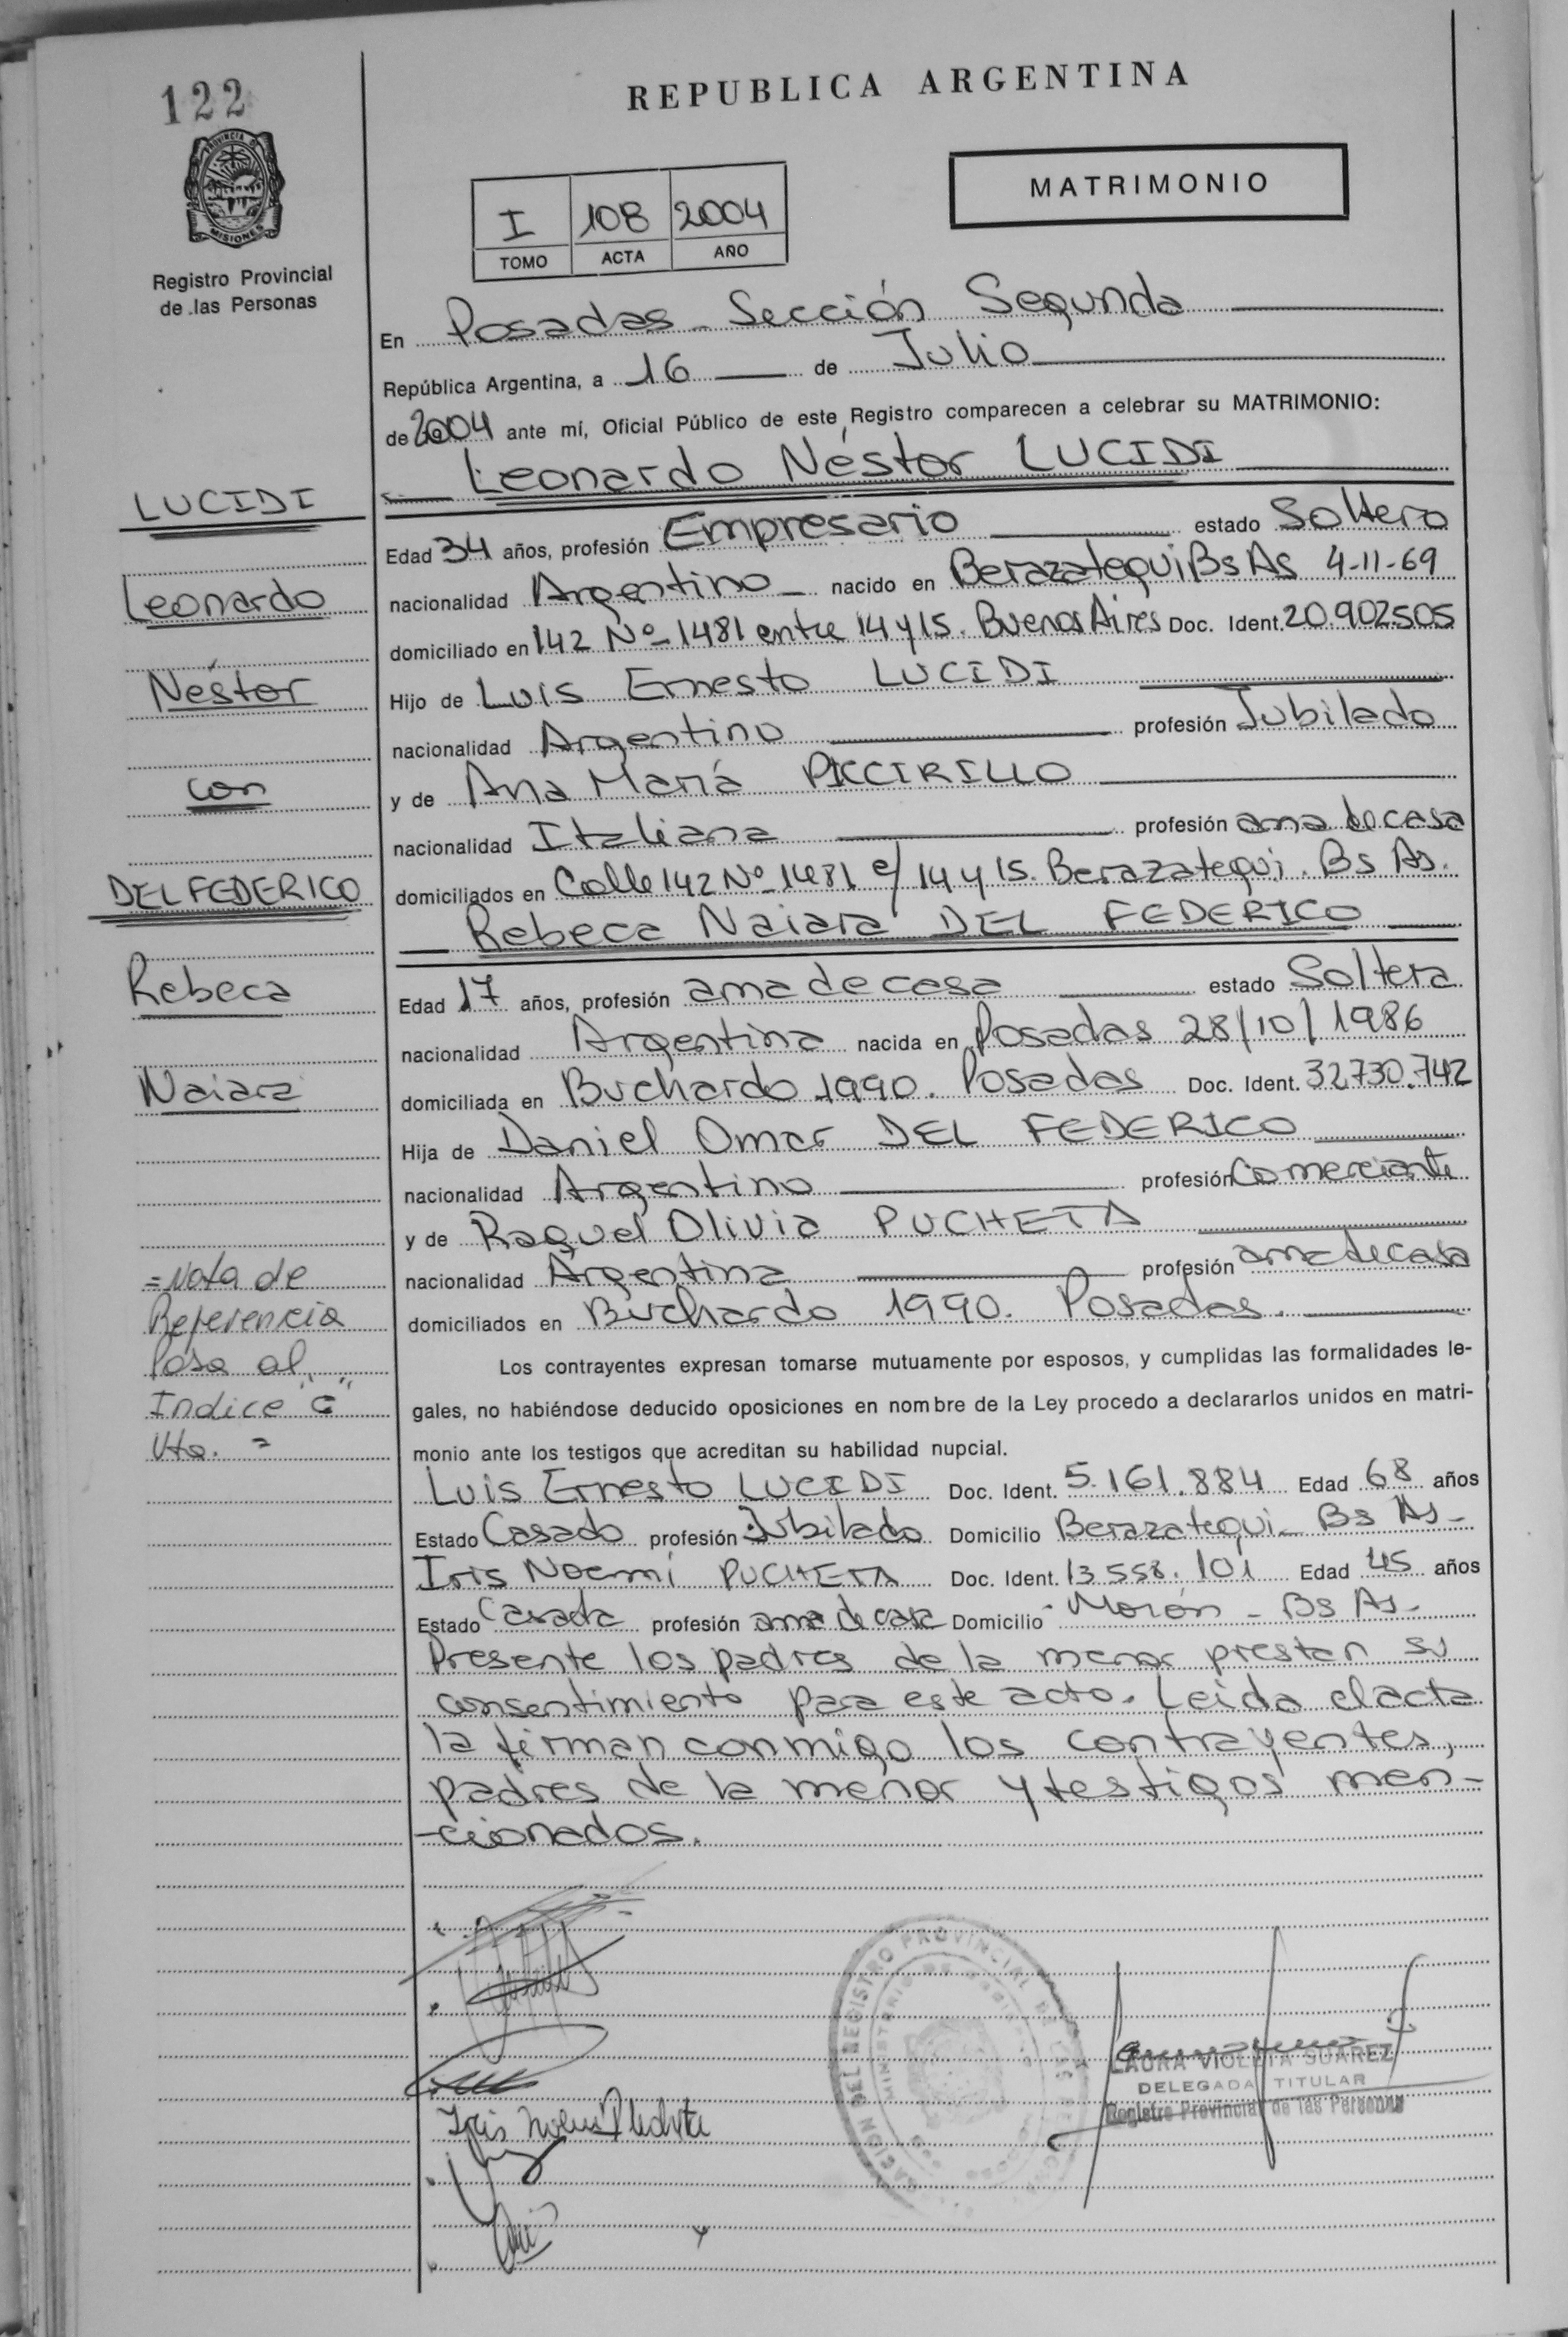 122
REPUBLICA ARGENTINA
PROVINCIA D
MISIONES
Registro Provincial
de las Personas
MATRIMONIO
I 108 2004
TOMO ACTA AÑO
En Posadas - Sección Segunda
República Argentina, a 16 de Julio
de 2004 ante mí, Oficial Público de este Registro comparecen a celebrar su MATRIMONIO:
Leonardo Néstor LUCIDI
LUCIDI
Edad 34 años, profesión Empresario estado Soltero
Leonardo
nacionalidad Argentino nacido en Berazategui Bs As 4-11-69
domiciliado en 142 Nº 1481 entre 14 y 15. Buenos Aires Doc. Ident. 20.902505
Néstor
Hijo de Luis Ernesto LUCIDI
nacionalidad Argentino profesión Jubilado
con
y de Ana María PICCIRILLO
nacionalidad Italiana profesión ama de casa
DEL FEDERICO
domiciliados en Calle 142 Nº 1481 e/ 14 y 15. Berazategui. Bs As.
Rebeca Naiara DEL FEDERICO
Rebeca
Edad 17 años, profesión ama de casa estado Soltera
nacionalidad Argentina nacida en Posadas 28/10/1986
Naiara
domiciliada en Buchardo 1990. Posadas Doc. Ident. 32.730.742
Hija de Daniel Omar DEL FEDERICO
nacionalidad Argentino profesión Comerciante
y de Raquel Olivia PUCHETA
nacionalidad Argentina profesión ama de casa
domiciliados en Buchardo 1990. Posadas.
=Nota de
Referencia
Pasa al
Indice "C"
Vta. =
Los contrayentes expresan tomarse mutuamente por esposos, y cumplidas las formalidades le-
gales, no habiéndose deducido oposiciones en nombre de la Ley procedo a declararlos unidos en matri-
monio ante los testigos que acreditan su habilidad nupcial.
Luis Ernesto LUCIDI Doc. Ident. 5.161.884 Edad 68 años
Estado Casado profesión Jubilado Domicilio Berazategui - Bs As-
Iris Noemí PUCHETA Doc. Ident. 13.558.101 Edad 45 años
Estado Casada profesión ama de casa Domicilio Morón - Bs As-
Presente los padres de la menor prestan su
consentimiento para este acto. Leida el acta
la firman conmigo los contrayentes,
padres de la menor y testigos men-
-cionados.
Iris Noemi Pucheta
LAURA VIOLETA SUAREZ
DELEGADA TITULAR
Registro Provincial de las Personas